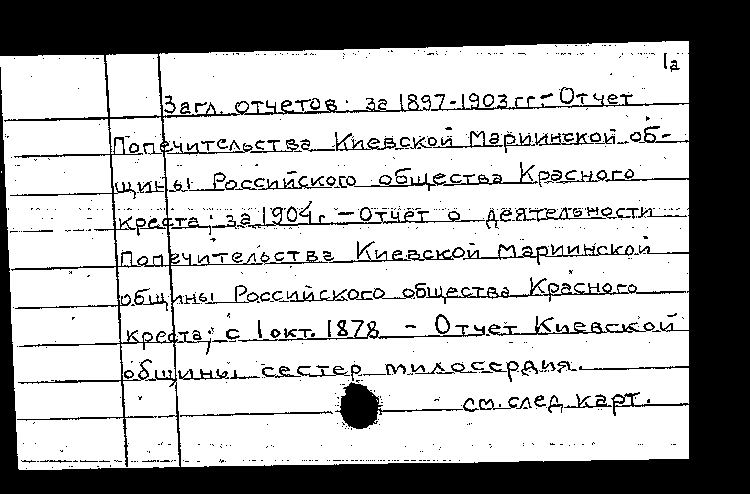 1а
Загл. отчетов: за 1897-1903 гг. - Отчет
Попечительства Киевской Мариинской об-
щины Российского общества Красного
креста; за 1904 г. - Отчет о деятельности
Попечительства Киевской Мариинской
общины Российского общества Красного
креста; с 1 окт. 1878 - Отчет Киевской
общины сестер милосердия.
см. след. карт.